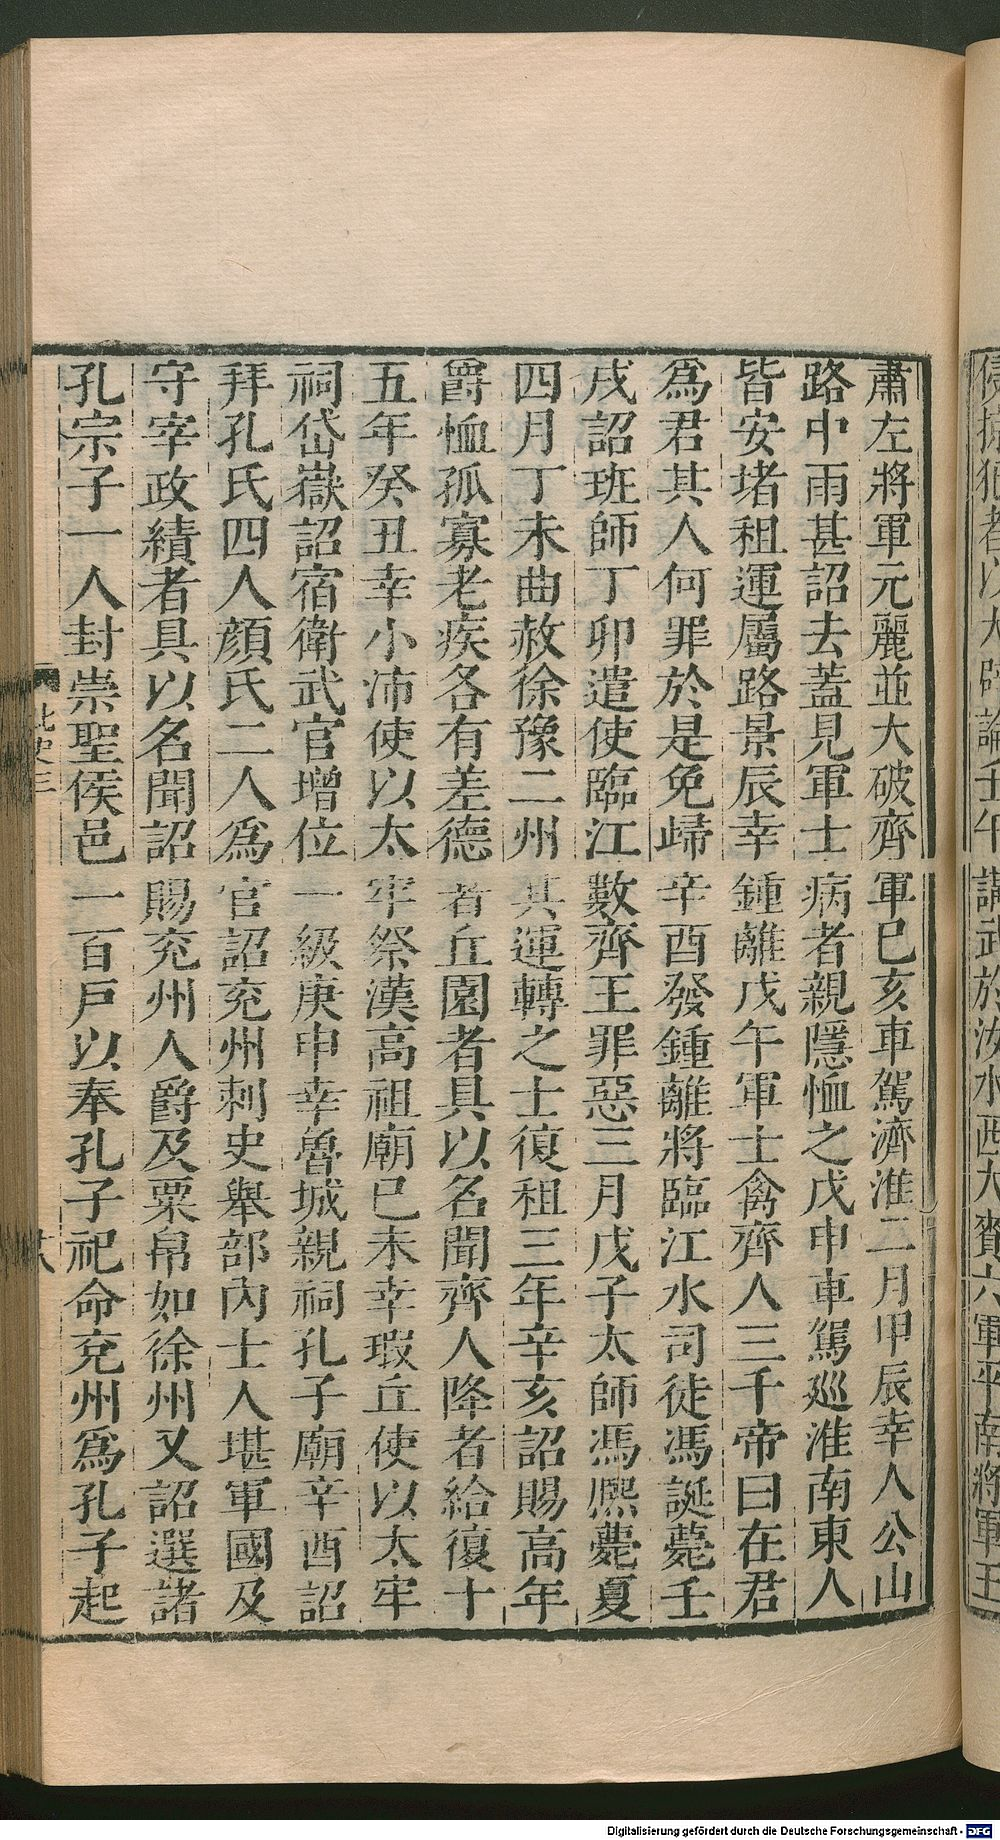 肅左將軍元麗並大破齊軍巳亥車駕濟淮二月甲辰幸人公山
路中雨甚詔去蓋見軍士病者親隱恤之戊申車駕廵淮南東人
皆安堵租運屬路景辰幸鍾離戊午軍士禽齊人三千帝曰在君
爲君其人何罪於是免歸辛酉發鍾離將臨江水司徒馮誕薨壬
戌詔班師丁卯遣使臨江數齊王罪惡三月戊子太師馮熈薨夏
四月丁未曲赦徐豫二州其運轉之士復租三年辛亥詔賜高年
爵恤孤寡老疾各有差德著丘園者具以名聞齊人降者給復十
五年癸丑幸小沛使以太牢祭漢高祖廟巳未幸瑕丘使以太牢
祠岱嶽詔宿衛武官增位一級庚申幸魯城親祠孔子廟辛酉詔
拜孔氏四人顔氏二人爲官詔兖州刺史舉部內士人堪軍國及
守宰政績者具以名聞詔賜兖州人爵及粟帛如徐州又詔選諸
孔宗子一人封崇聖侯邑一百戸以奉孔子祀命兖州爲孔子起
北史三
十八
Digitalisierung gefördert durch die Deutsche Forschungsgemeinschaft - DFG